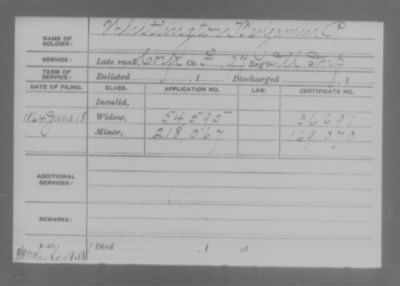 NAME OF SOLDIER: Whittington Benjamin P
SERVICE: Late rank, Corp Co. F, 27 Reg't U. Inf
TERM OF SERVICE: Enlisted , 1 Discharged , 1
DATE OF FILING. CLASS. APPLICATION NO. LAW. CERTIFICATE NO.
Invalid,
1864 June 15 Widow, 54595 36691
Minor, 218,067 169,973
ADDITIONAL SERVICES:
REMARKS:
Died , 1 , at